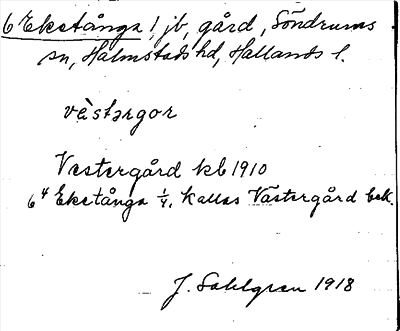 6 Eketånga 1, jb, gård, Söndrums
sn, Halmstads hd, Hallands l.
vàstərgor
Vestergård kb 1910
6⁴ Eketånga ¼, kallas Västergård bek.
J. Sahlgren 1918